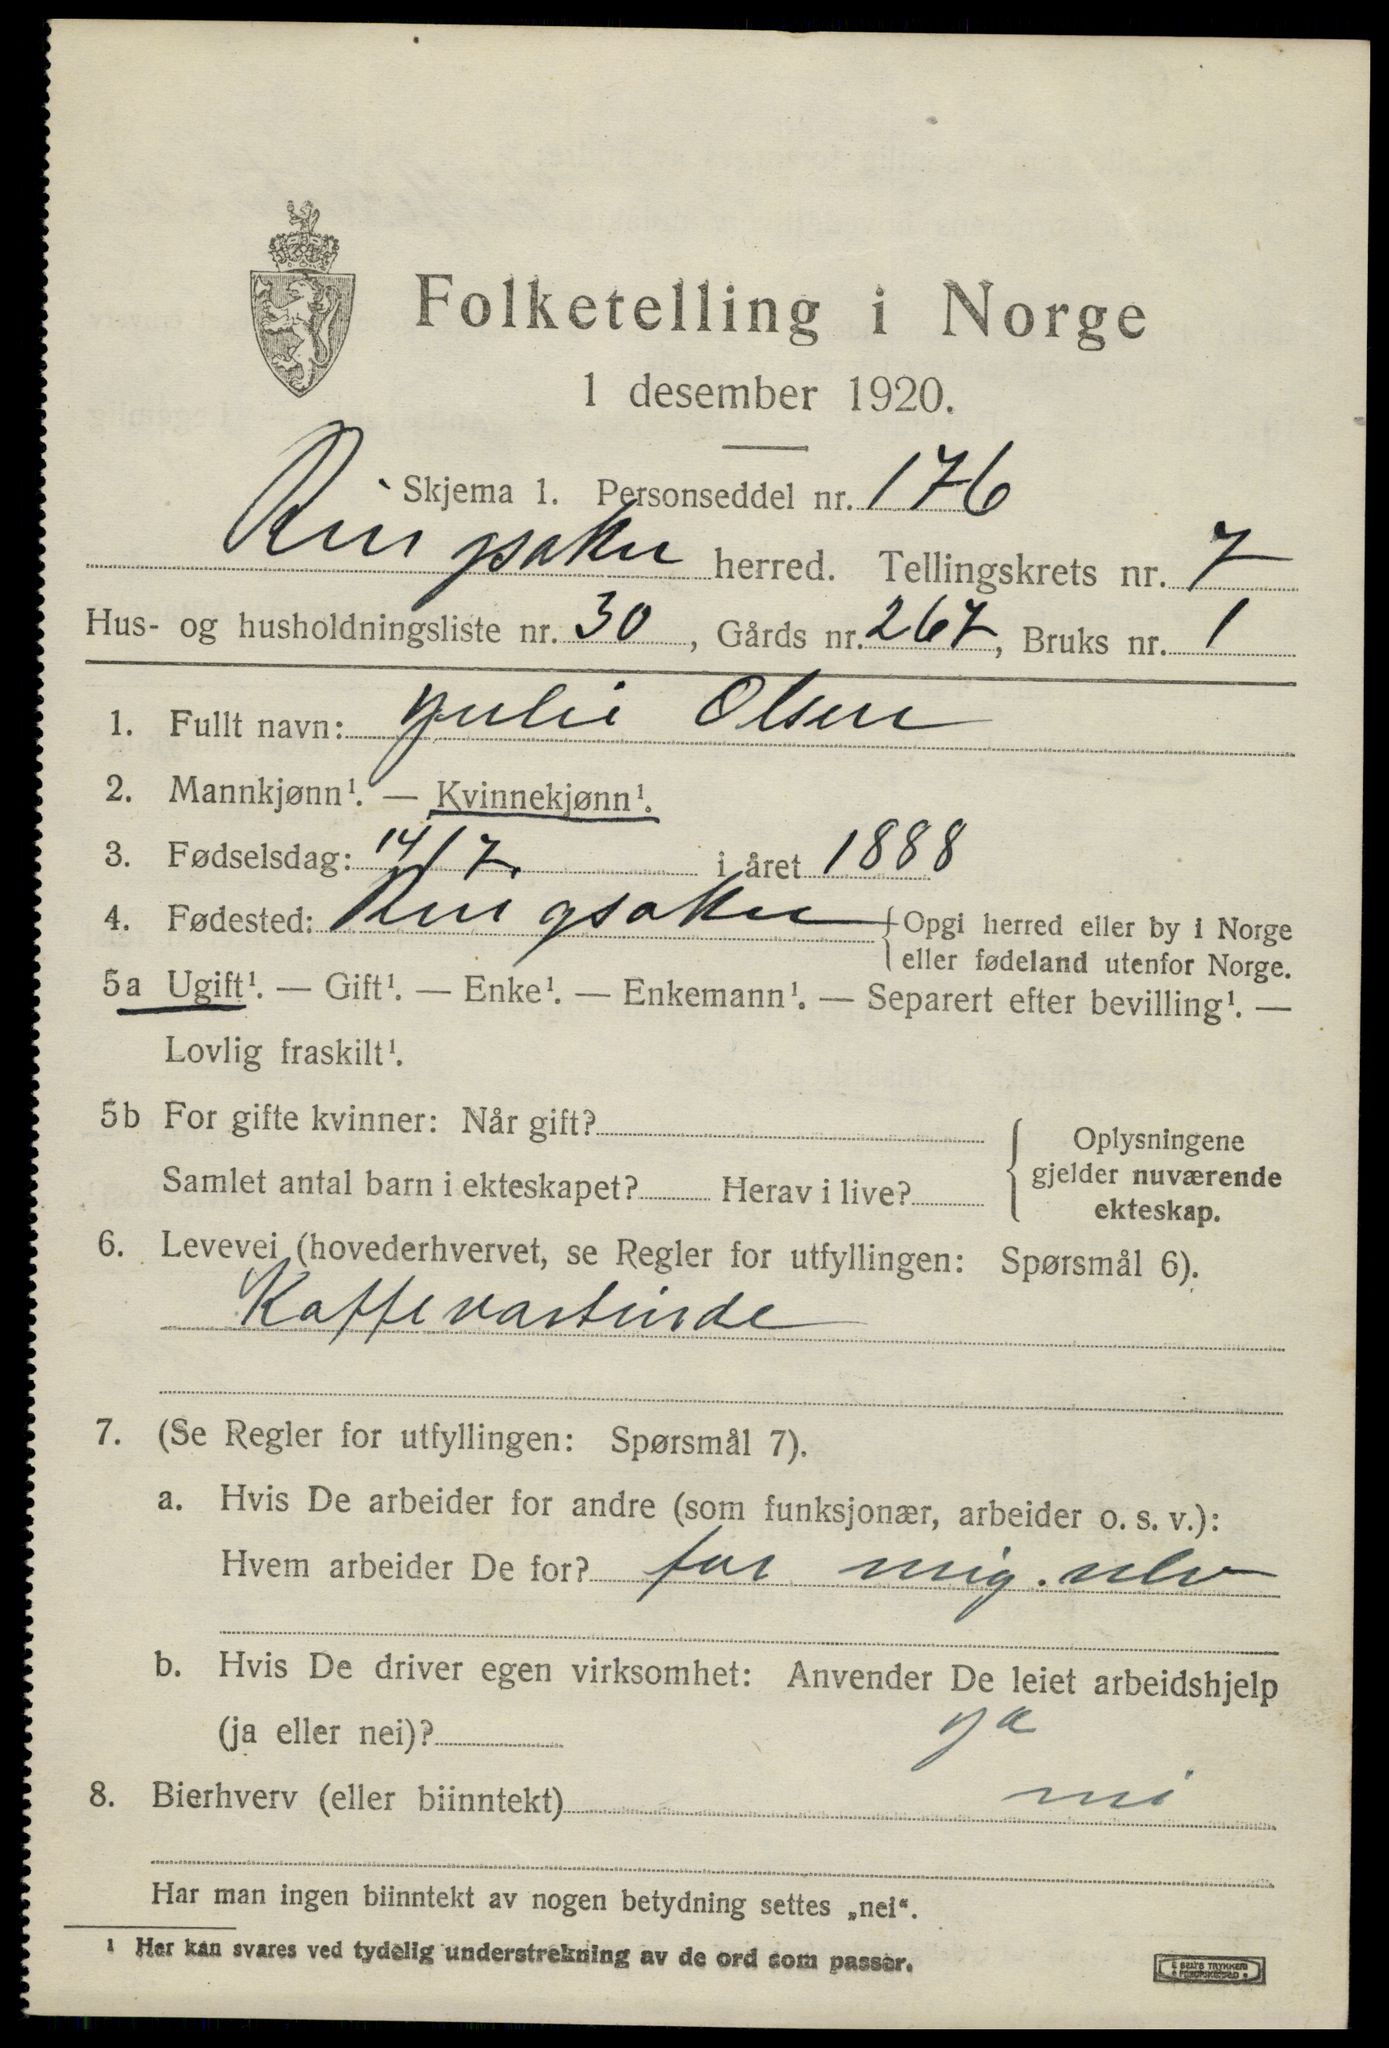 Folketelling i Norge
1 desember 1920.
Skjema 1. Personseddel nr. 176
Ringsaker herred. Tellingskrets nr. 7
Hus- og husholdningsliste nr. 30, Gårds nr. 267, Bruks nr. 1
1. Fullt navn: Julie Olsen
2. Mannkjønn¹. — Kvinnekjønn¹.
3. Fødselsdag: 14/7. i året 1888
4. Fødested: Ringsaker {Opgi herred eller by i Norge
eller fødeland utenfor Norge.
5a Ugift¹. — Gift¹. — Enke¹. — Enkemann¹. — Separert efter bevilling¹. —
Lovlig fraskilt¹.
5b For gifte kvinner: Når gift?
Samlet antal barn i ekteskapet? Herav i live?
{ Oplysningene
gjelder nuværende
ekteskap.
6. Levevei (hovederhvervet, se Regler for utfyllingen: Spørsmål 6).
Kaffevartinde
7. (Se Regler for utfyllingen: Spørsmål 7).
a. Hvis De arbeider for andre (som funksjonær, arbeider o. s. v.):
Hvem arbeider De for? for mig selv
b. Hvis De driver egen virksomhet: Anvender De leiet arbeidshjelp
(ja eller nei)? ja
8. Bierhverv (eller biinntekt) nei
Har man ingen biinntekt av nogen betydning settes „nei“.
¹ Her kan svares ved tydelig understrekning av de ord som passer.